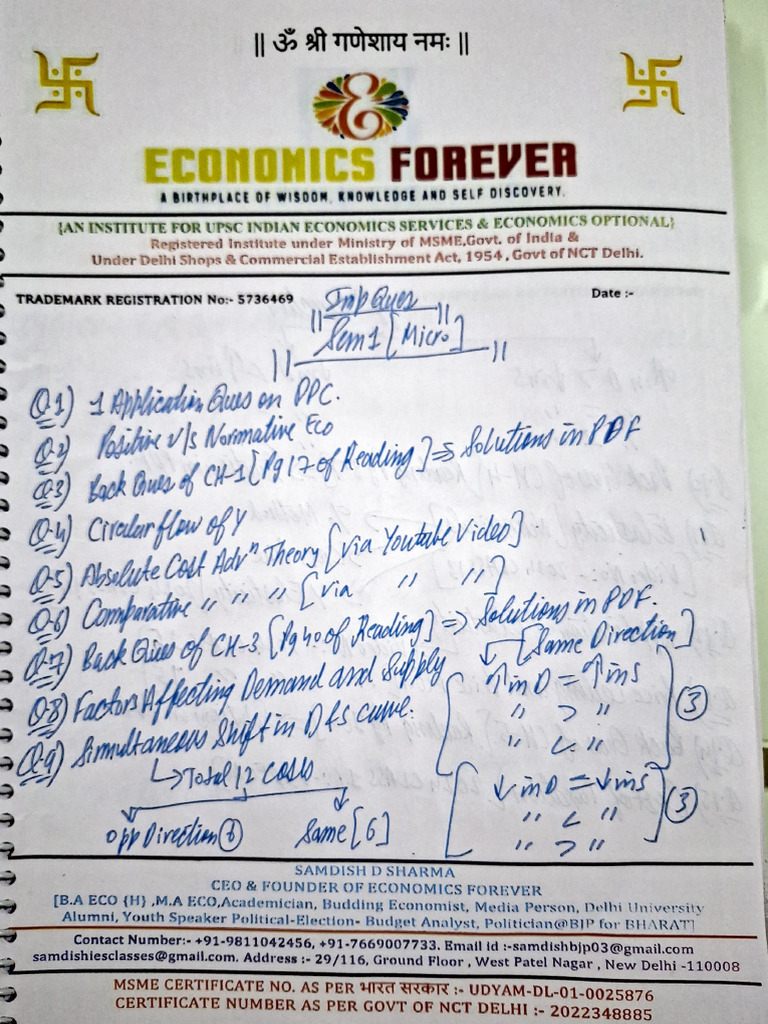 || ॐ श्री गणेशाय नमः ||
ECONOMICS FOREVER
A BIRTHPLACE OF WISDOM, KNOWLEDGE AND SELF DISCOVERY.
{AN INSTITUTE FOR UPSC INDIAN ECONOMICS SERVICES & ECONOMICS OPTIONAL}
Registered Institute under Ministry of MSME,Govt. of India &
Under Delhi Shops & Commercial Establishment Act, 1954 , Govt of NCT Delhi.
TRADEMARK REGISTRATION No:- 5736469 Date :-
|| Imp Ques ||
|| Sem 1 [Micro] ||
Q.1) 1 Application Ques on PPC.
Q.2) Positive v/s Normative Eco
Q.3) Back Ques of CH-1 [Pg 17 of Reading] => Solutions in PDF
Q.4) Circular flow of Y
Q.5) Absolute Cost Advⁿ Theory [via Youtube Video]
Q.6) Comparative " " " [via " "]
Q.7) Back Ques of CH-3 [Pg 40 of Reading] => Solutions in PDF.
Q.8) Factors Affecting Demand and Supply
Q.9) Simultaneous Shift in D & S curve.
↳ Total 12 cases
Opp Direction (6) Same [6]
[Same Direction]
↑ in D = ↑ in S
" > "
" < " (3)
↓ in D = ↓ in S
" < " (3)
" > "
SAMDISH D SHARMA
CEO & FOUNDER OF ECONOMICS FOREVER
[B.A ECO {H} ,M.A ECO,Academician, Budding Economist, Media Person, Delhi University
Alumni, Youth Speaker Political-Election- Budget Analyst, Politician@BJP for BHARAT]
Contact Number:- +91-9811042456, +91-7669007733. Email id :-samdishbjp03@gmail.com
samdishiesclasses@gmail.com. Address :- 29/116, Ground Floor , West Patel Nagar , New Delhi -110008
MSME CERTIFICATE NO. AS PER भारत सरकार :- UDYAM-DL-01-0025876
CERTIFICATE NUMBER AS PER GOVT OF NCT DELHI :- 2022348885